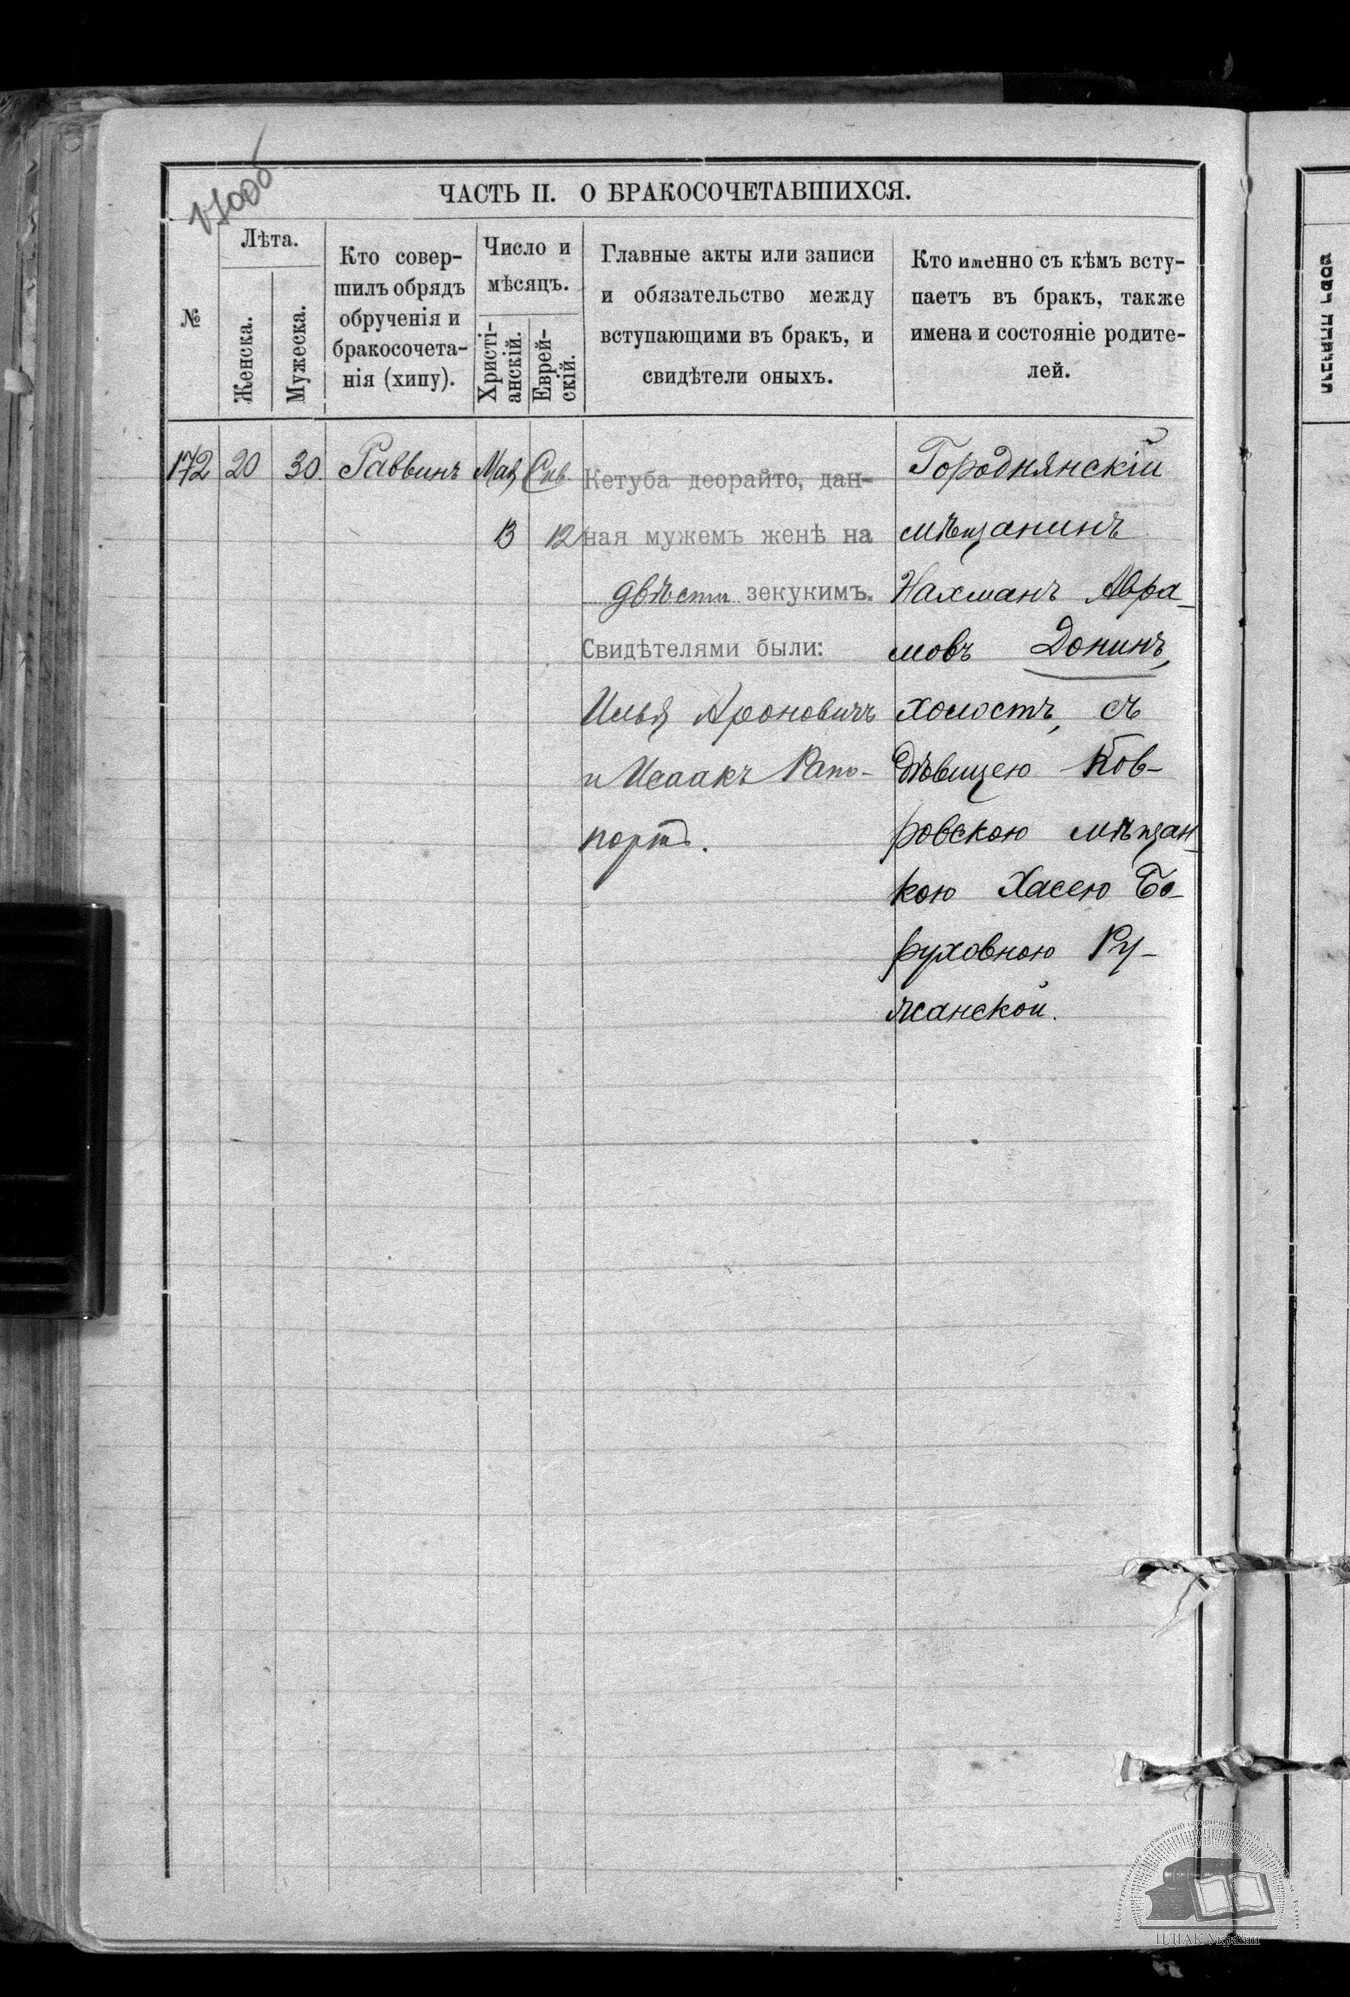 ЧАСТЬ II. О БРАКОСОЧЕТАВШИХСЯ.
№
Лѣта.
Женска.
Мужеска.
Кто совер-
шилъ обрядъ
обрученія и
бракосочета-
нія (хипу).
Число и
мѣсяцъ.
Христі-
анскій.
Еврей-
скій.
Главные акты или записи
и обязательство между
вступающими въ бракъ, и
свидѣтели оныхъ.
Кто именно съ кѣмъ всту-
паетъ въ бракъ, также
имена и состояніе родите-
лей.
172
20
30.
Раввинъ
Мая
13
Сив.
12
Кетуба деорайто, дан-
ная мужемъ женѣ на
двѣсти зекукимъ.
Свидѣтелями были:
Илья Ароновичъ
и Исаакъ Рапо-
портъ.
Городнянскій
мѣщанинъ
Нахманъ Авра-
мовъ Донинъ,
холостъ, съ
дѣвицею Ков-
ровскою мѣщан-
кою Хасею Бо-
руховною Ру-
жанской.
ЦДІАК України